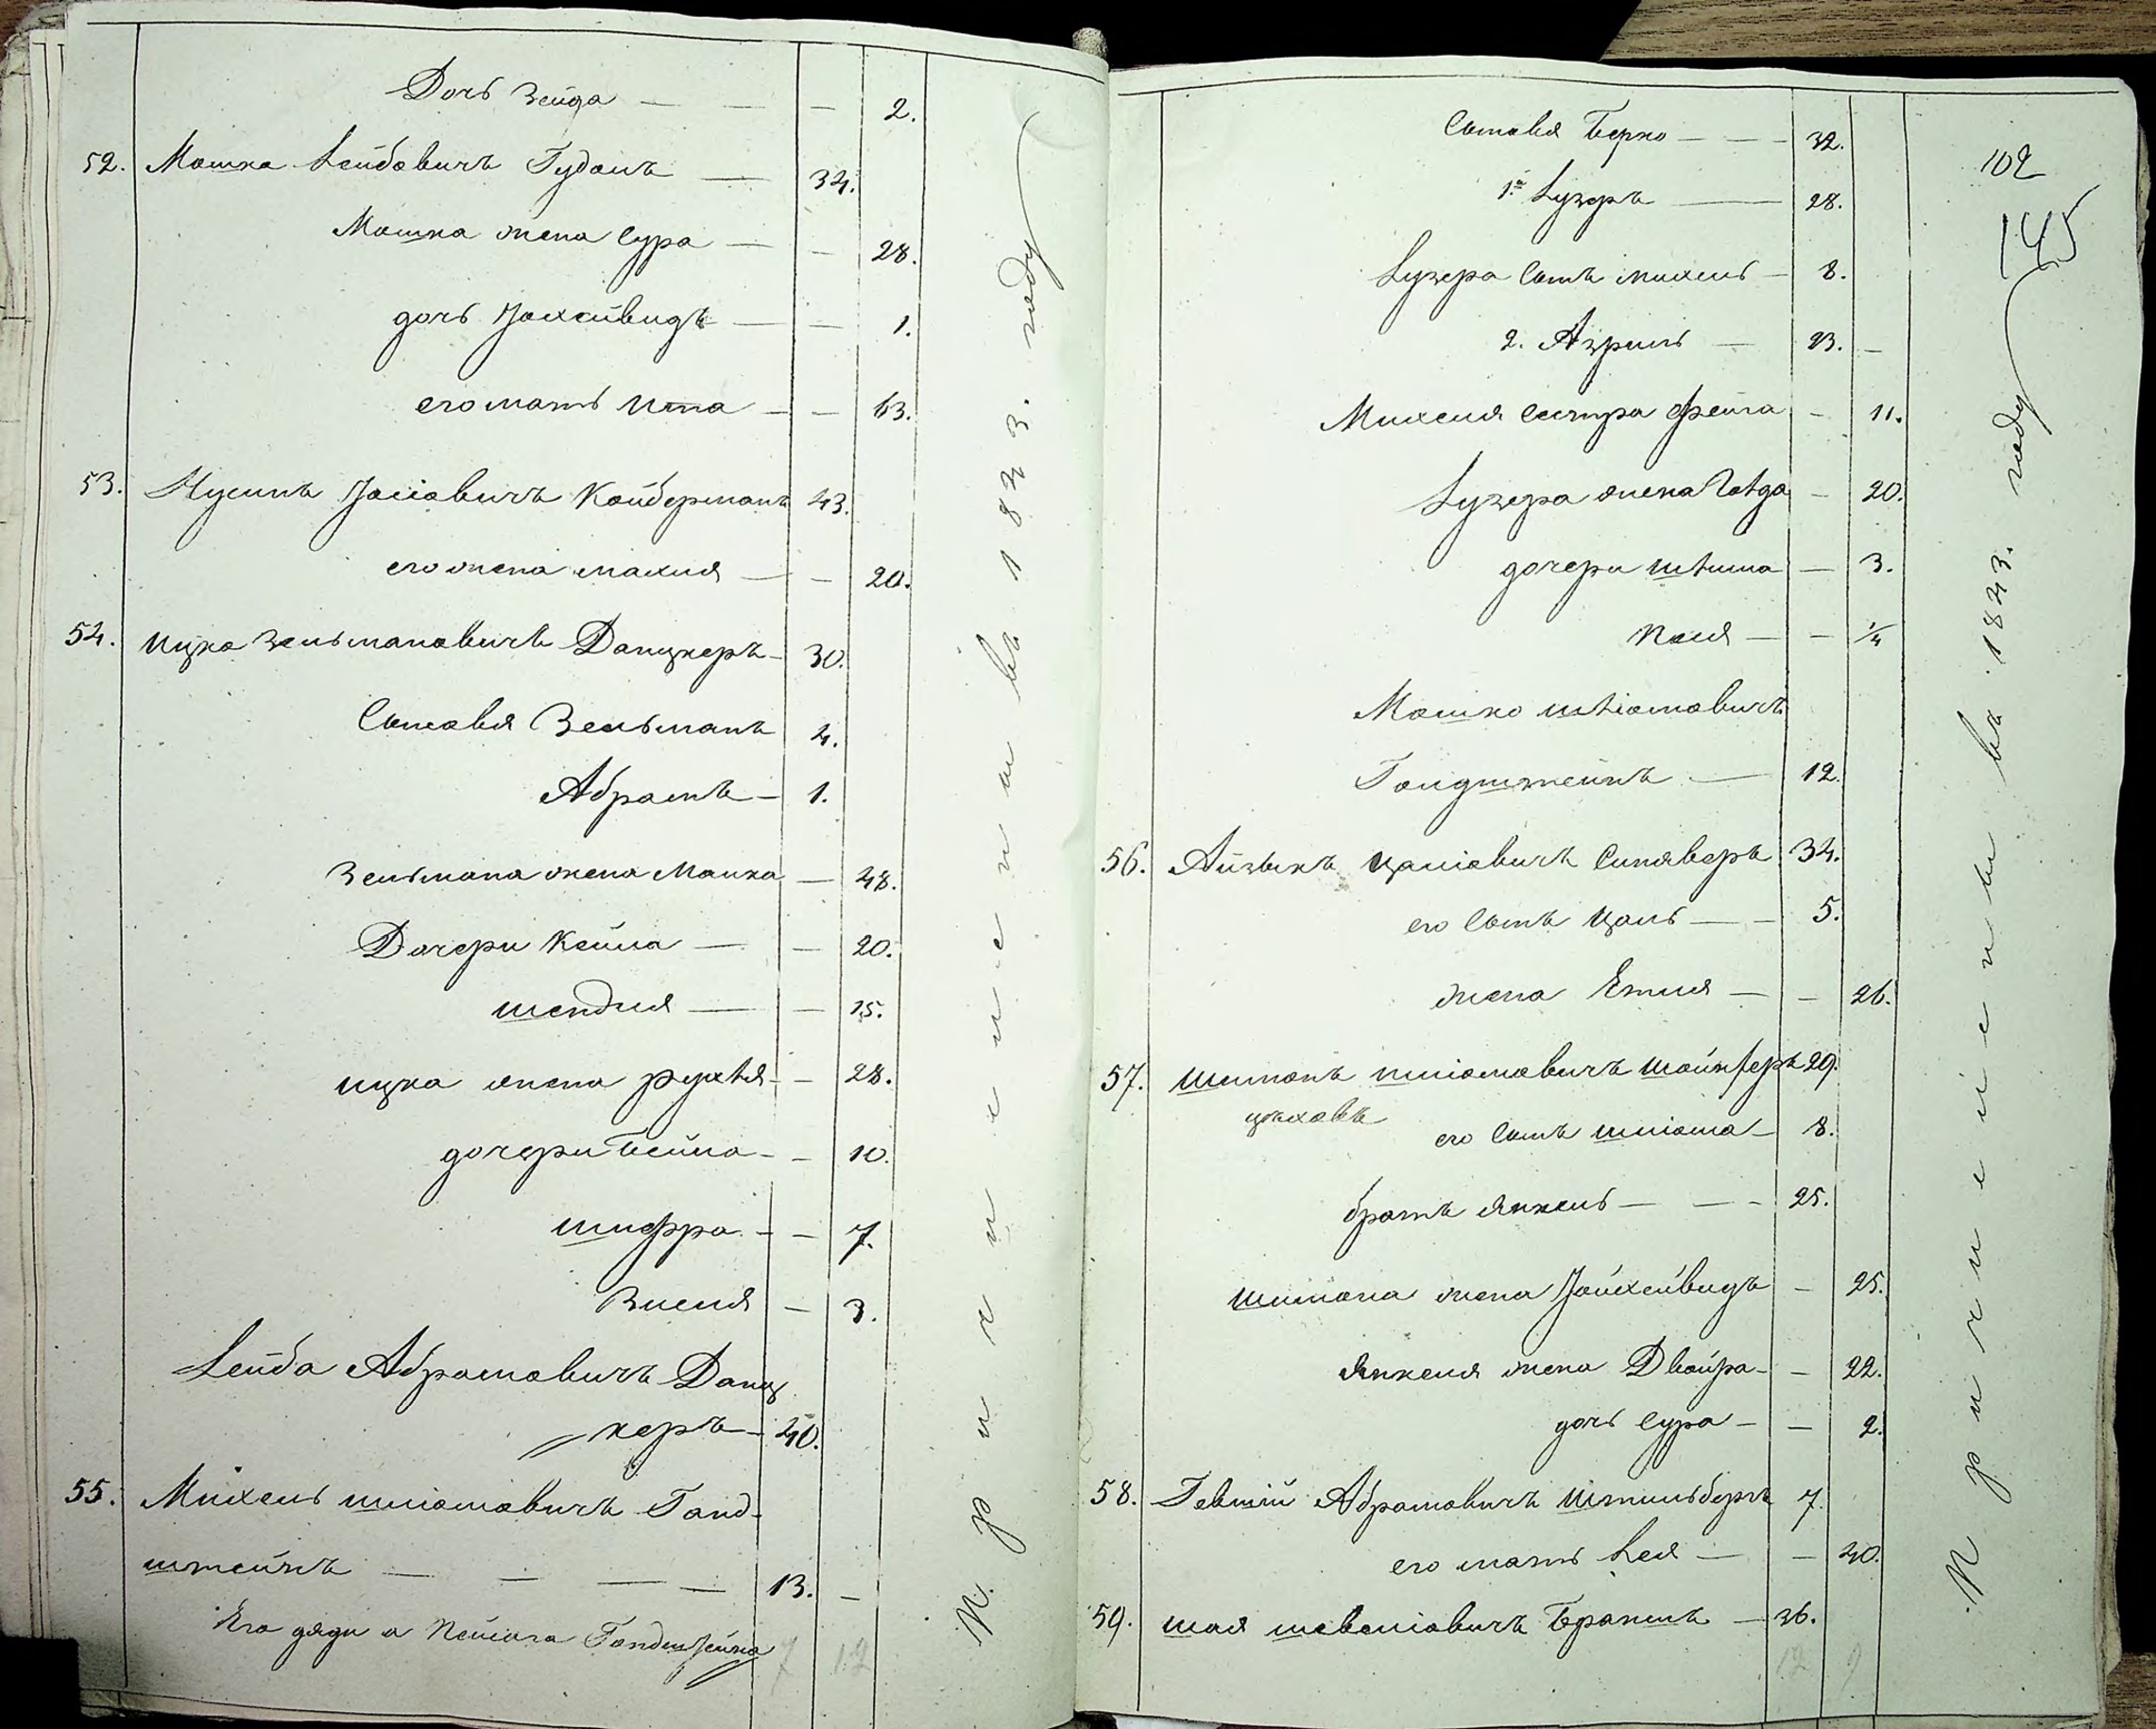 Дочь Зейда — — — 2.
52. Мошка Лейбовичъ Гудомъ — 34.
Мошка жена Сура — — 28.
дочь Йохейвидъ — — 1.
его мать Ита — — 63.
53. Нусинъ Йосіовичъ Койберманъ 43.
его жена Махля — — 20.
54. Ицка Зельмановичъ Данцкеръ — 30.
Сыновья Зельманъ 4.
Абрамъ — 1.
Зельмана жена Маика — 48.
Дочери Кейла — — 20.
Шендля — — 15.
Ицка жена Рухля — — 28.
дочери Бейла — — 10.
Шифра — — 7.
Зиселя — 3.
Лейба Абрамовичъ Данц
керъ — 40.
55. Михель Шліомовичъ Голд-
штейнъ — — — — 13. —
Его дяди а Гольдштейна
7 12
Причислены въ 1843. году
102
145
Сыновья Берко — — — 32.
1й Лузеръ — 28.
Лузера Сынъ Михель — 8.
2. Азриль — 23. —
Михеля Сестра Фейга — 11.
Лузера жена — 20.
дочери — 3.
Песя — — 1/4
Мошко Шліомовичъ
Голдштейнъ — 12.
56. Айзыкъ Цаліовичъ Синяверъ 34.
его Сынъ Цаль — — 5.
жена Етля — — 26.
57. Шимонъ Шліомовичъ Шойхферъ 29.
цѣховъ
его Сынъ Шліома — 8.
братъ Янкель — — — 25.
Шимона жена Йойхейвидъ — 25.
Янкеля жена Двойра — — 22.
дочь Сура — — 2.
58. Гевшій Абрамовичъ Штильбергъ 7.
его мать Лея — — 40.
59. Шая Шевеліовичъ — 36.
12 9
Причислены въ 1843. году